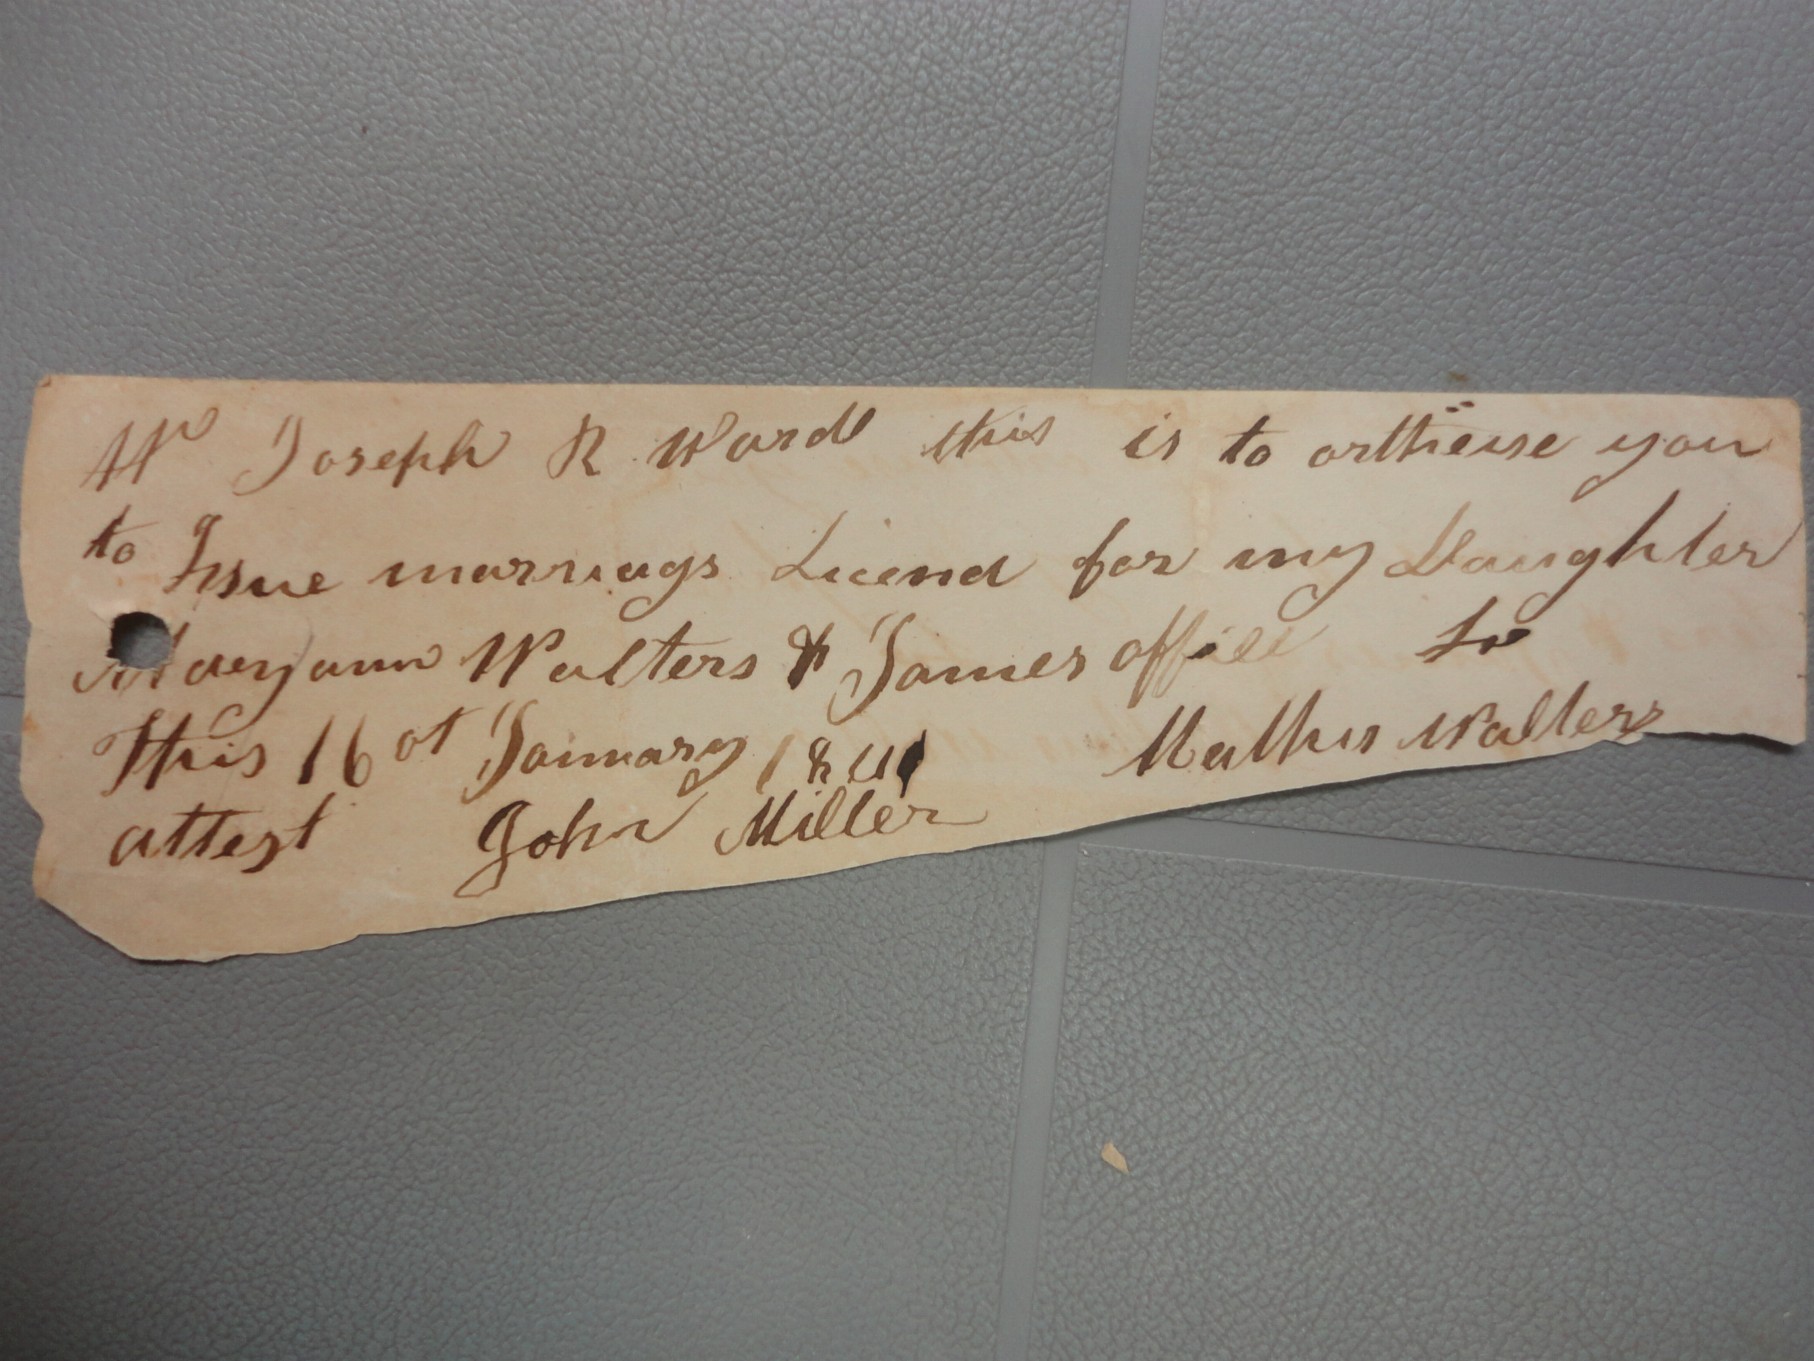 Mr Joseph R Ward this is to ortheise you
to Issue marriags Licend for my Daughter
Maryann Walters & James offill to
This 16 of January 1841 Mathis Walters
attest John Miller